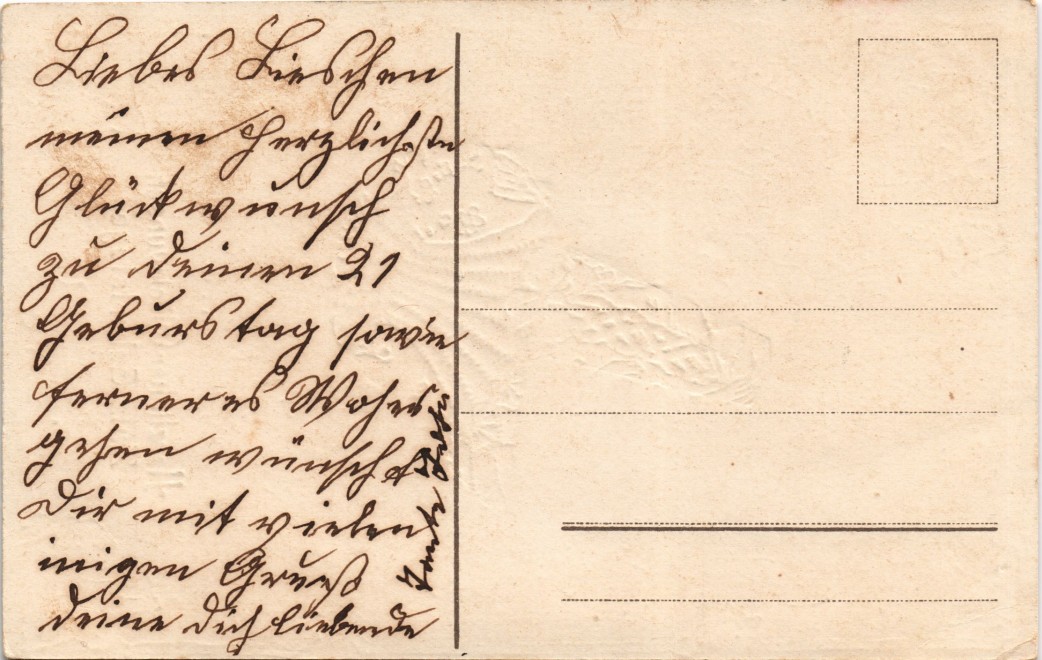 Liebes Lieschen
meinen herzlichsten
Glückwunsch
zu deinen 21
Geburstag sowie
ferneres Wohes
gehen wünscht
Dir mit vielen
innigen Gruß
deine dich liebende
Tante